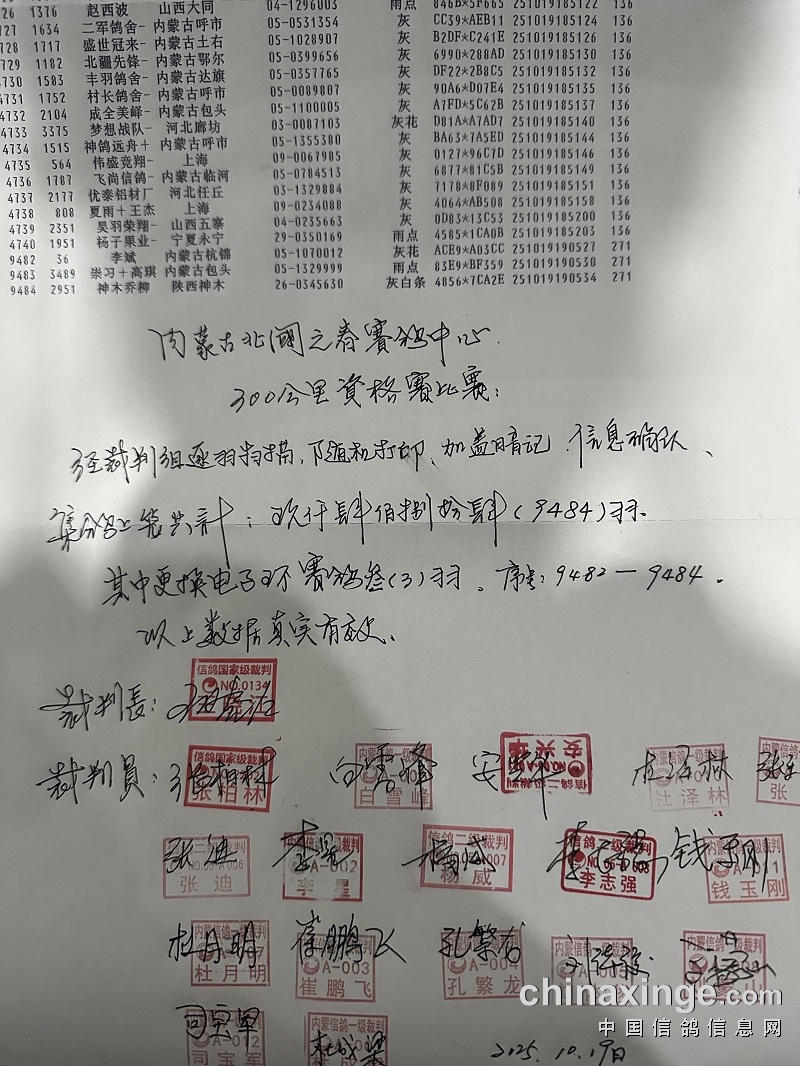 26 1376 赵西波 山西大同 04-1296003 雨点 846B*5F665 251019185122 136
727 1634 二军鸽舍- 内蒙古呼市 05-0531354 灰 CC39*AEB11 251019185124 136
728 1717 盛世冠来- 内蒙古土右 05-1028907 灰 B2DF*C241E 251019185126 136
4729 1182 北疆先锋- 内蒙古鄂尔 05-0399656 灰 6990*288AD 251019185130 136
4730 1583 丰羽鸽舍- 内蒙古达旗 05-0357765 灰 DF22*2B8C5 251019185132 136
4731 1752 村长鸽舍- 内蒙古呼市 05-0089807 灰 90A6*D07E4 251019185135 136
4732 2104 成全美峄- 内蒙古包头 05-1100005 灰 A7FD*5C62B 251019185137 136
4733 3375 梦想战队- 河北廊坊 03-0087103 灰花 D81A*A7AD7 251019185140 136
4734 1515 神鸽远舟+ 内蒙古呼市 05-1355380 灰 BA63*7A5ED 251019185144 136
4735 564 伟盛竞翔- 上海 09-0067985 灰 0127*96C7D 251019185146 136
4736 1787 飞尚信鸽- 内蒙古临河 05-0784513 灰 6877*81C5B 251019185149 136
4737 2177 优泰铝材厂 河北任丘 03-1329884 灰 7178*8F089 251019185151 136
4738 808 夏雨+王杰 上海 09-0234088 灰 4064*AB508 251019185158 136
4739 2351 昊羽荣翔- 山西五寨 04-0235663 灰 0D83*13C53 251019185200 136
4740 1951 杨子果业- 宁夏永宁 29-0350169 雨点 4585*1CA0B 251019185203 136
9482 36 李斌 内蒙古杭锦 05-1070012 灰花 ACE9*A03CC 251019190527 271
9483 3489 崇习+高琪 内蒙古包头 05-1329999 雨点 83E9*BF359 251019190530 271
9484 2951 神木乔柳 陕西神木 26-0345630 灰白条 4856*7CA2E 251019190534 271
内蒙古北疆之春赛鸽中心
300公里資格賽比賽:
经裁判组逐羽扫描,随机打印、加盖暗记.信息确认、
集鸽上笼共计:玖仟肆佰捌拾肆(9484)羽.
其中更换电子环赛鸽叁(3)羽。序号:9482-9484.
以上数据真实有效、
信鸽国家级裁判
NO.0134
裁判長:
信鸽国家级裁判
张柏林
裁判員:张柏林 白雪峰 安兴华 杜泽林 张
白雪峰 安兴华 杜泽林 张
张迪 李星 杨威 李志强 钱玉刚
张迪 李星 杨威 李志强 钱玉刚
A-002
杜月明 崔鹏飞 孔繁龙
杜月明 崔鹏飞 孔繁龙
A-003 A-004
司宝军
司宝军
2025.10.19日
chinaxinge.com
中国信鸽信息网